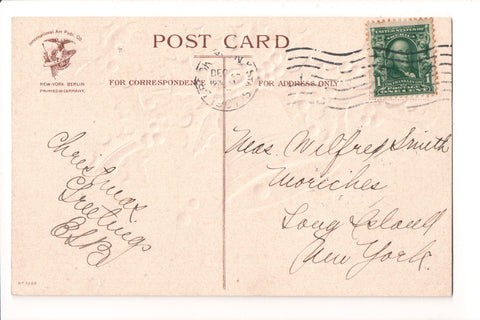 International Art Publ. Co.
NEW-YORK BERLIN
PRINTED IN GERMANY.
POST CARD
FOR CORRESPONDENCE
FOR ADDRESS ONLY
DEC
1
Christmas
Greetings
Mrs. Wilfred Smith
Moriches
Long Island
New York.